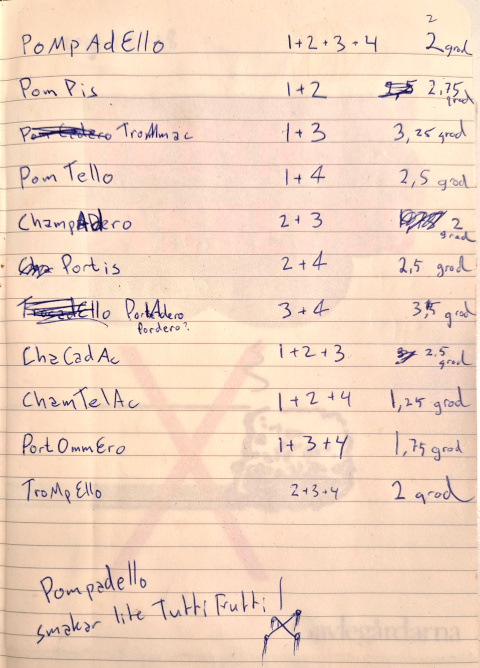 PoMpAdEllo 1+2+3+4 2 2 grad
PomPis 1+2 2,75 grad
TroMmac 1+3 3,25 grad
PomTello 1+4 2,5 grad
ChampADero 2+3 2 grad
Portis 2+4 2,5 grad
PortAdero 3+4 3,5 grad
Pordero?
ChaCadAc 1+2+3 2,5 grad
ChamTelAc 1+2+4 1,25 grad
PortOmmEro 1+3+4 1,75 grad
TroMpEllo 2+3+4 2 grad
Pompadello
smakar lite Tutti Frutti!